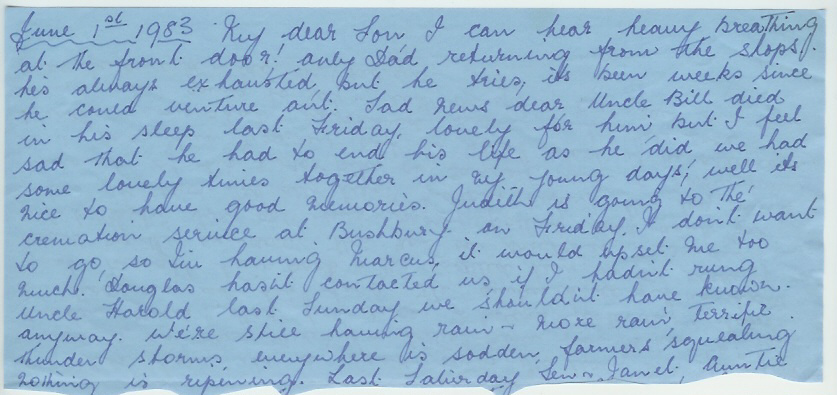 June 1st 1983 My dear Son I can hear heavy breathing
at the front door! only Dad returning from the shops.
he's always exhausted, but he tries, its been weeks since
he could venture out. Sad news dear Uncle Bill died
in his sleep last Friday, lovely for him but I feel
sad that he had to end his life as he did we had
some lovely times together in my young days, well its
nice to have good memories. Judith is going to the
cremation service at Bushbury on Friday. I don't want
to go, so I'm having Marcus, it would upset me too
much. Douglas hasn't contacted us if I hadn't rung
Uncle Harold last Sunday we shouldn't have known.
anyway. We're still having rain - more rain, terrific
thunder storms, everywhere is sodden, farmers squealing
nothing is ripening. Last Saturday Len & Janet, Auntie